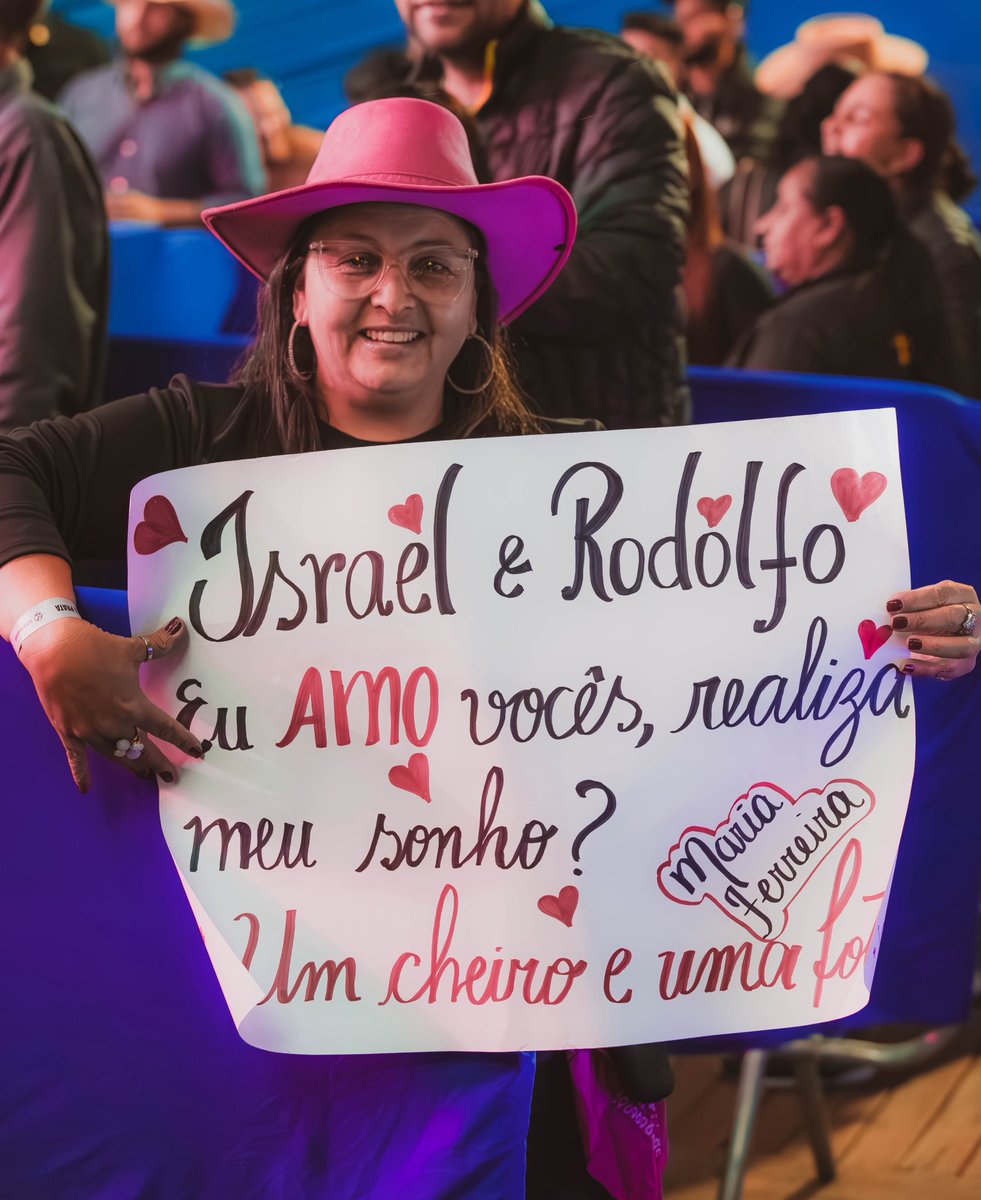 Israel e Rodolfo
Eu AMO vocês, realiza
meu sonho?
Maria
Ferreira
Um cheiro e uma
PRATA